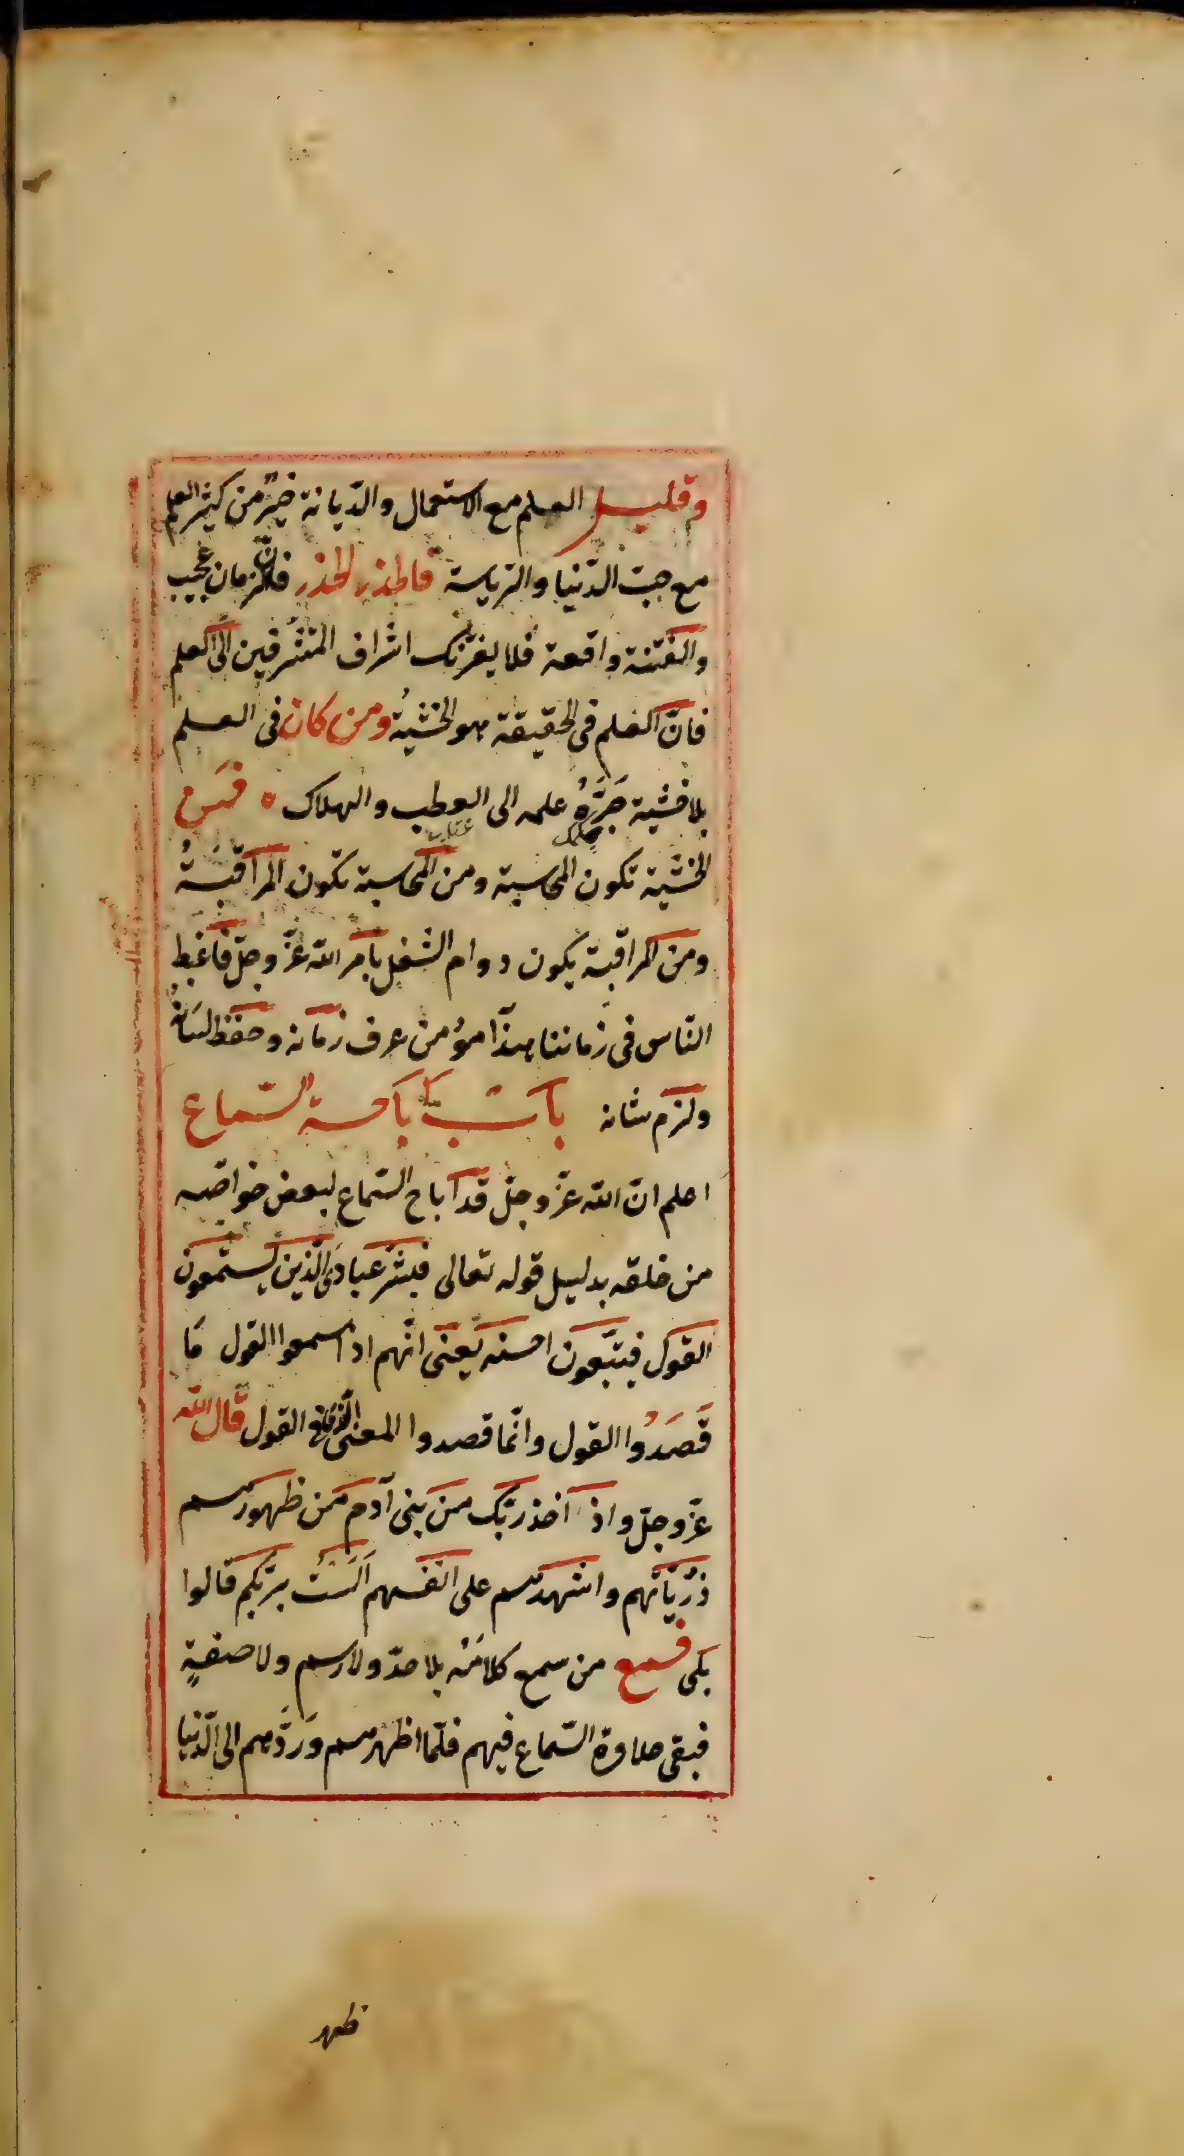 وقليل العلم مع الاستعمال والدّيانة خيرٌ من كثير العلم
مع حبّ الدّنيا والرّياسة فالحذر الحذر فانّ الزمان عجيب
والفتنة واقعة فلا يغرّنك اشراف المتشرفين الى العلم
فانّ العلم فى الحقيقة هو الخشيةُ ومن كان فى العلم
بلا خشية جَرَّهُ علمه الى العطب والهلاك ه فمن
الخشية تكون المحاسبة ومن المحاسبة تكون المراقبةُ
ومن المراقبة يكون دوام الشغل بامر الله عزّ وجلّ فاغبط
النّاس فى زماننا هذا مؤمن عرف زمانه وحفظ لسانهُ
ولزم شانه باب اباحة السّماع
اعلم انّ الله عزّ وجلّ قد اباح السّماع لبعض خواصّه
من خلقه بدليل قوله تعالى فبشّر عبادىَ الّذين يستمعون
القول فيتّبعون احسنه يعنى انّهم اذا سمعوا القول مَا
قَصَدُوا القول وانّما قصدوا المعنى الّذى فى القول قال الله
عزّ وجلّ واذ اخذ ربّك من بنى آدم من ظهورهم
ذرّيّاتهم واشهدهم على انفسهم اَلَسْتُ بربّكم قالوا
بلى فسمع من سمع كلامَهُ بلا حدّ ولا رسم ولا صفةٍ
فبقى حلاوة السّماع فيهم فلمّا اظهرهم وَرَدَّهم الى الدّنيا
ظهر